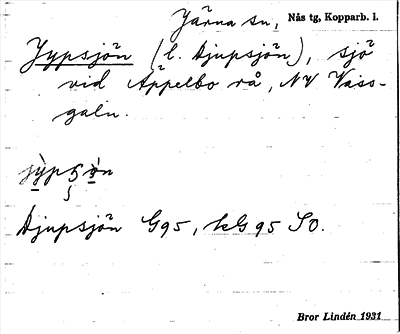 Järna sn, Nås tg, Kopparb. l.
Jypsjön (l. Djupsjön), sjö
vid Äppelbo rå, NV Vass-
galn.
Djupsjön G95, kG 95 SO.
Bror Lindén 1931